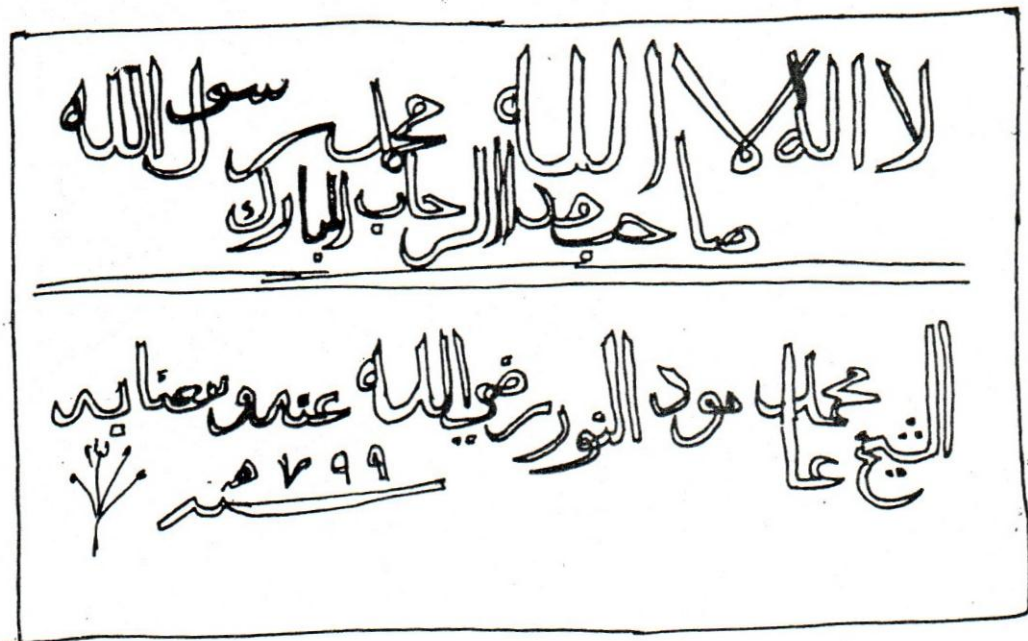 لا اله الا الله محمد رسول الله
صاحب هذا الرحاب المبارك
الشيخ محمد النور رضي الله عنه ونفعنا به
سنة ٧٩٩ هـ